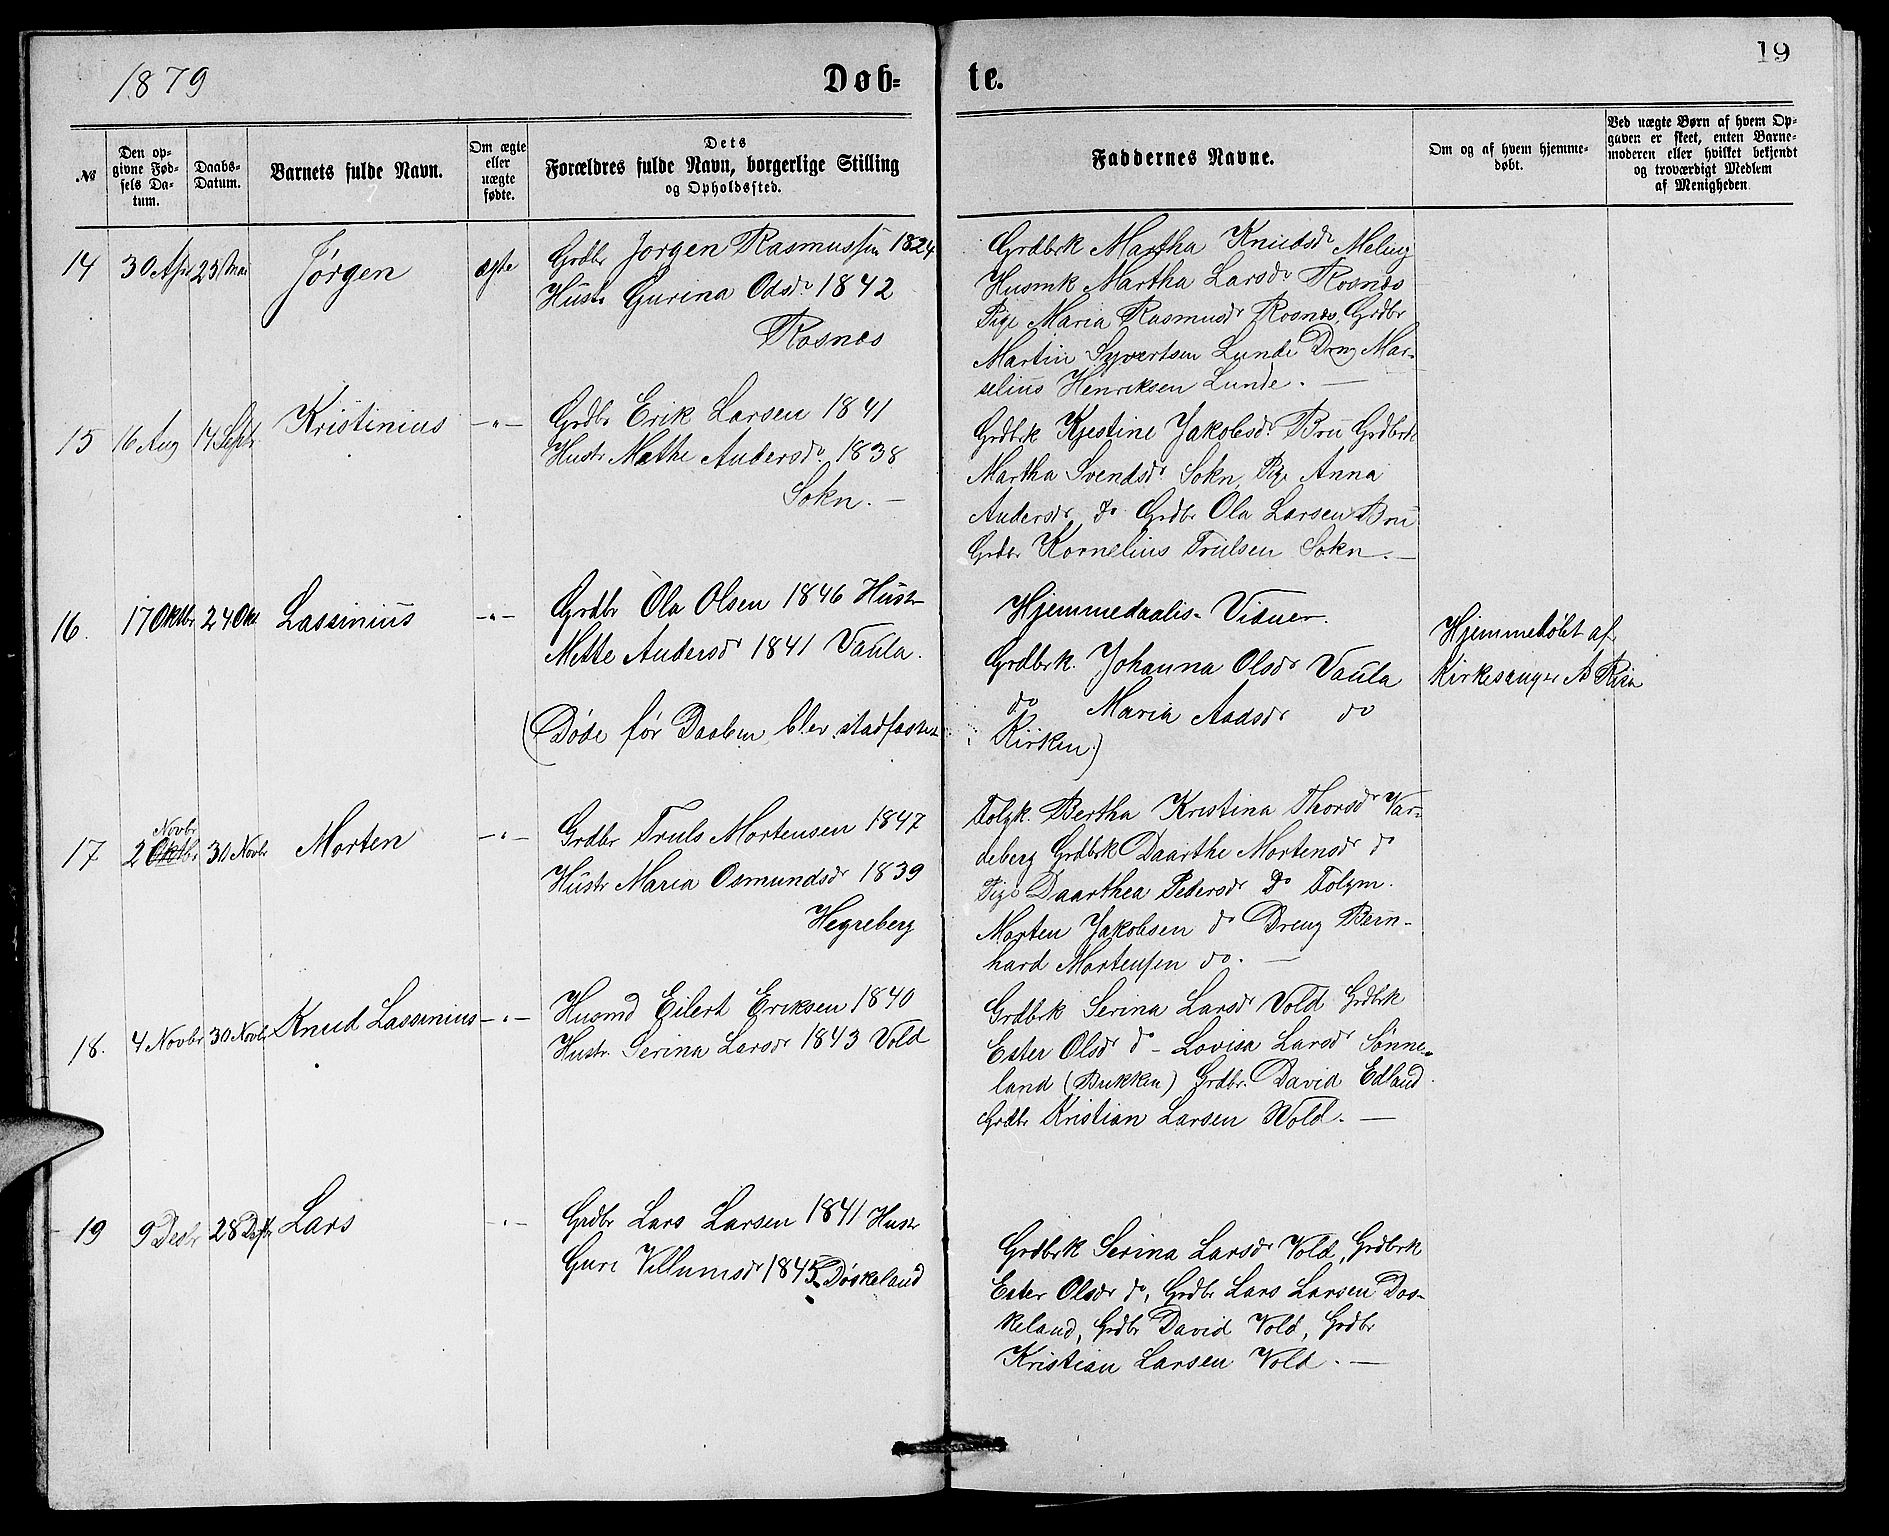 1879
Døb-
te.
19
№
Den op-
givne Fød-
sels Da-
tum.
Daabs-
Datum.
Barnets fulde Navn.
Om ægte
eller
uægte
fødte.
Dets
Forældres fulde Navn, borgerlige Stilling
og Opholdssted.
Faddernes Navne.
Om og af hvem hjemme-
døbt.
Ved uægte Børn af hvem Op-
gaven er skeet, enten Barne-
moderen eller hvilket bekjendt
og troværdigt Medlem
af Menigheden.
14 30 Apr 25 Mai Jørgen ægte
Grdbr Jørgen Rasmussen 1824
Hustr Gurina Odsdr 1842
Rosnes
Grdbrk Martha Knudsdr Meling
Husmk Martha Larsdr Rosnes
Pige Maria Rasmusdr Rosnes, Grdbr
Martin Syvertsen Lunde Dreng Mar-
selius Henriksen Lunde. —
15 16 Aug 14 Septr Kristinius -"-
Grdbr Erik Larsen 1841
Hustr Methe Andersdr 1838
Sokn. —
Grdbrk Kjestine Jakobsdr Bru Grdbrk
Martha Svendsdr Sokn, Pige Anna
Andersdr do Grdbr Ola Larsen Bru
Grdbr Kornelius Trulsen Sokn. —
16. 17 Oktbr 24 Okt Lassinius -"-
Grdbr Ola Olsen 1846 Hustr
Mette Andersdr 1841 Vaula.
(Døde før Daaben blev stadfæstet
Hjemmedaabs-Vidner.
Grdbrk. Johanna Olsdr Vaula
do Maria Aadsdr do
Kirken)
Hjemmedøbt af
Kirkesanger A
17 2 Novbr Oktbr 30 Novbr Morten -"-
Grdbr Truls Mortensen 1847
Hustr Maria Osmundsdr 1839
Hegreberg
Folgk. Bertha Kristina Thorsdr Var-
deberg Grdbrk Daarthe Mortensdr do
Pige Daarthea Pedersdr Do Folgm.
Morten Jakobsen do Dreng Bern-
hard Mortensen do. —
18. 4 Novbr 30 Novbr Knud Lassinius -"-
Husmd Eilert Eriksen 1840
Hustr. Serina Larsdr 1843 Vold
Grdbrk Serina Larsdr Vold Grdbrk
Ester Olsdr do - Lovisa Larsdr Sønne-
land (Bukken) Grdbr. David Edland.
Grdbr Kristian Larsen Wold. —
19 9 Decbr 28 Decbr Lars -"-
Grdbr Lars Larsen 1841 Hustr
Guri Villumsdr 1845 Døskeland
Grdbrk Serina Larsdr Vold, Grdbrk
Ester Olsdr do, Grdbr Lars Larsen Døs-
keland, Grdbr David Vold, Grdbr
Kristian Larsen Vold. —